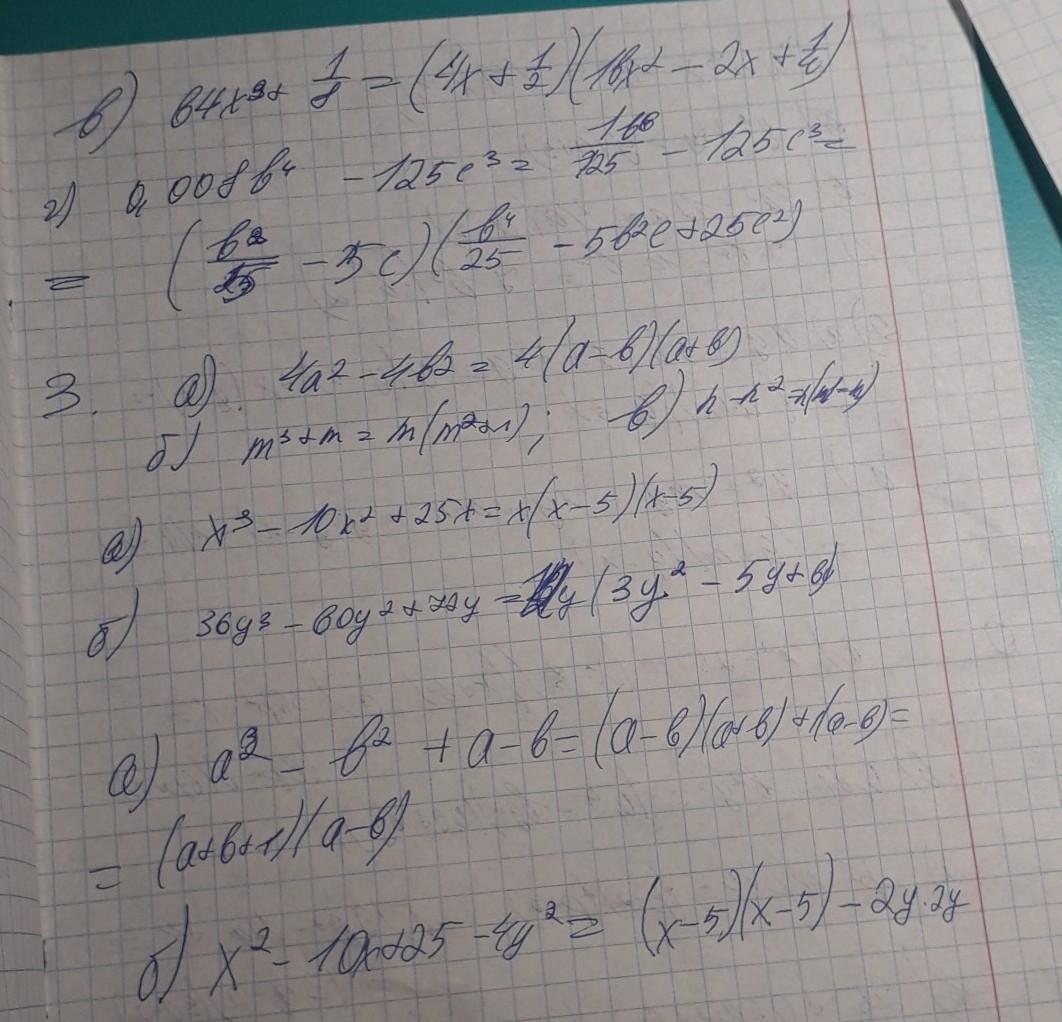 в) 64x³ + 1/8 = (4x + 1/2)(16x² - 2x + 1/4)
г) 0,008b⁴ - 125c³ = 1b⁶/125 - 125c³ =
= (b²/5 - 5c)(b⁴/25 - 5b²c + 25c²)
3. а) 4a² - 4b² = 4(a-b)(a+b)
б) m³ + m = m(m²+1); в)
а) x³ - 10x² + 25x = x(x-5)(x-5)
б) 36y³ - 60y² + 72y = 12y(3y² - 5y + 6)
а) a² - b² + a - b = (a-b)(a+b) + 1(a-b) =
= (a+b+1)(a-b)
б) x² - 10x + 25 - 4y² = (x-5)(x-5) - 2y·2y